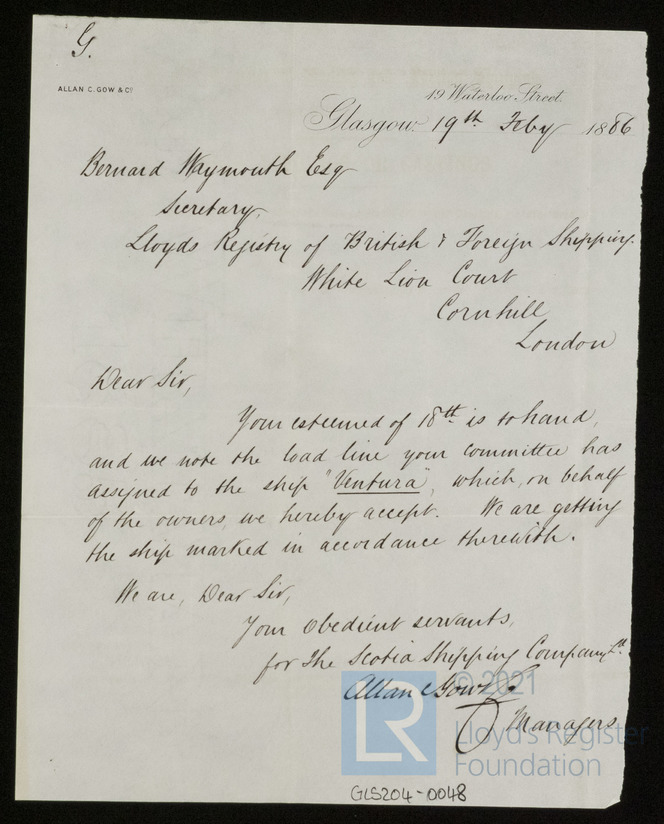 G.
ALLAN C. GOW & Co
19 Waterloo Street.
Glasgow. 19th Feby 1886
Bernard Waymouth Esq
Secretary.
Lloyds Registry of British & Foreign Shipping.
White Lion Court
Cornhill
London
Dear Sir,
Your esteemed of 18th is to hand,
and we note the load line your committee has
assigned to the ship "Ventura", which, on behalf
of the owners, we hereby accept. We are getting
the ship marked in accordance therewith.
We are, Dear Sir,
Your obedient servants,
for The Scotia Shipping Company Ltd.
Allan C Gow & Co
Managers
LR © 2021
Lloyd's Register
Foundation
GLS204-0048